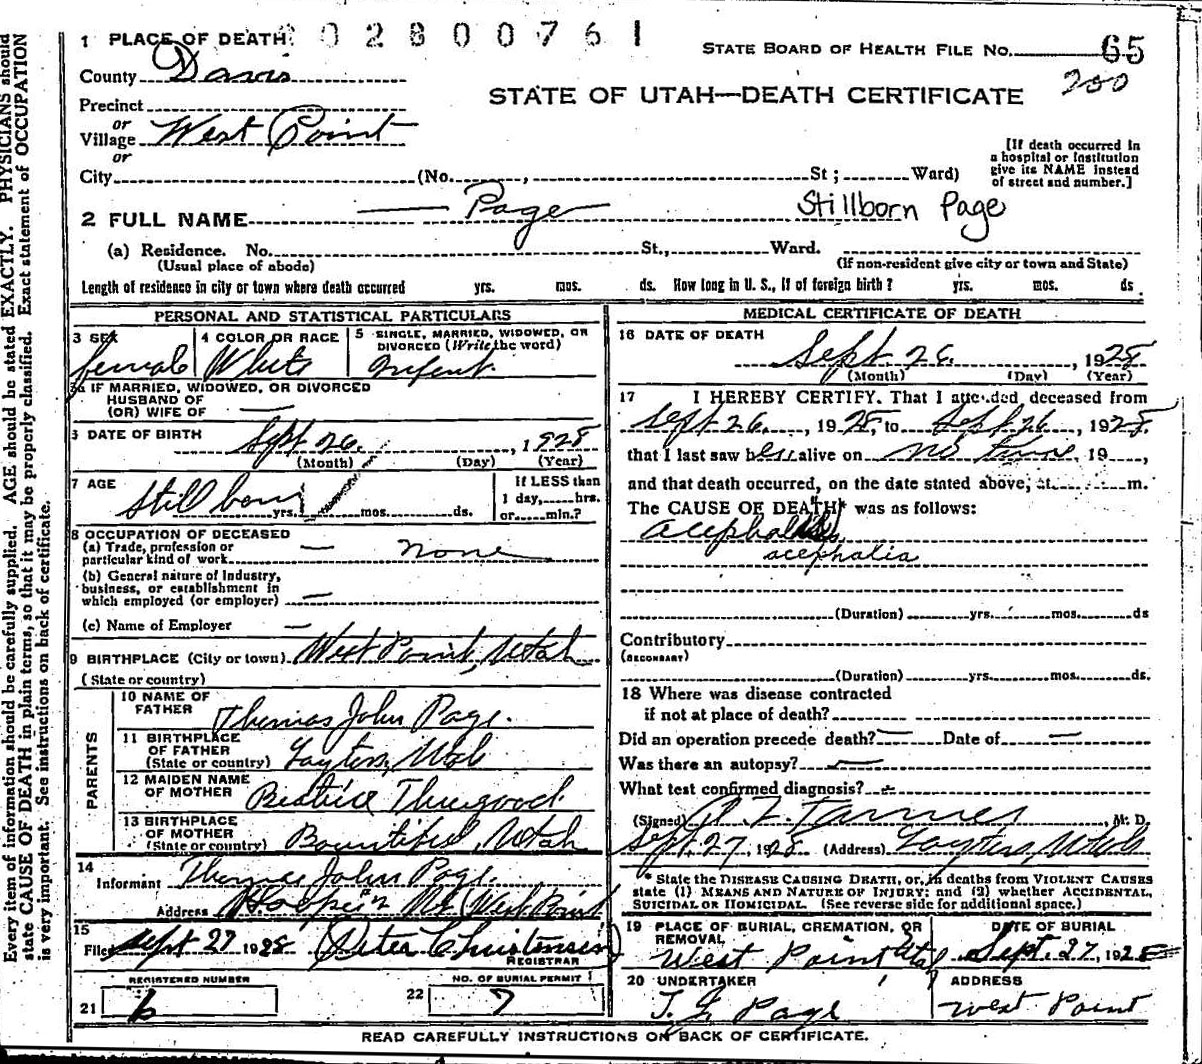 Every item of information should be carefully supplied. AGE should be stated EXACTLY. PHYSICIANS should
state CAUSE OF DEATH in plain terms, so that it may be properly classified. Exact statement of OCCUPATION
is very important. See instructions on back of certificate.
1 PLACE OF DEATH 02800761
STATE BOARD OF HEALTH FILE No. 65
200
County Davis
STATE OF UTAH—DEATH CERTIFICATE
Precinct
or
Village West Point
or
City (No. , St ; Ward)
[If death occurred in
a hospital or institution
give its NAME instead
of street and number.]
2 FULL NAME — Page Stillborn Page
(a) Residence. No. St., Ward.
(Usual place of abode) (If non-resident give city or town and State)
Length of residence in city or town where death occurred yrs. mos. ds. How long in U. S., if of foreign birth ? yrs. mos. ds.
PERSONAL AND STATISTICAL PARTICULARS
3 SEX 4 COLOR OR RACE 5 SINGLE, MARRIED, WIDOWED, OR
DIVORCED (Write the word)
female White Infent
3a IF MARRIED, WIDOWED, OR DIVORCED
HUSBAND OF
(OR) WIFE OF —
6 DATE OF BIRTH Sept 26, 1928
(Month) (Day) (Year)
7 AGE
Still born yrs. mos. ds.
If LESS than
1 day, hrs.
or min.?
8 OCCUPATION OF DECEASED
(a) Trade, profession or
particular kind of work — none
(b) General nature of Industry,
business, or establishment in
which employed (or employer) —
(c) Name of Employer —
9 BIRTHPLACE (City or town) West Point, Utah
(State or country)
PARENTS
10 NAME OF
FATHER Thomas John Page.
11 BIRTHPLACE
OF FATHER
(State or country) Layton, Utah
12 MAIDEN NAME
OF MOTHER Beatrice Thurgood
13 BIRTHPLACE
OF MOTHER
(State or country) Bountiful, Utah
14
Informant Thomas John Page.
Address Hooper West Point
15
Filed Sept 27 1928 Peter Christensen
REGISTRAR
REGISTERED NUMBER NO. OF BURIAL PERMIT
21 6 22 7
MEDICAL CERTIFICATE OF DEATH
16 DATE OF DEATH
Sept. 26, 1928
(Month) (Day) (Year)
17 I HEREBY CERTIFY. That I attended deceased from
Sept 26, 1928, to Sept 26, 1928
that I last saw her alive on no time, 19 ,
and that death occurred, on the date stated above, at m.
The CAUSE OF DEATH* was as follows:
acephalia
(Duration) yrs. mos. ds
Contributory
(SECONDARY)
(Duration) yrs. mos. ds.
18 Where was disease contracted
if not at place of death?
Did an operation precede death? — Date of —
Was there an autopsy? —
What test confirmed diagnosis? —
(Signed) Tanner, M. D.
Sept. 27, 1928 (Address) Layton, Utah
* State the DISEASE CAUSING DEATH, or, in deaths from VIOLENT CAUSES
state (1) MEANS AND NATURE OF INJURY; and (2) whether ACCIDENTAL,
SUICIDAL OR HOMICIDAL. (See reverse side for additional space.)
19 PLACE OF BURIAL, CREMATION, OR
REMOVAL
West Point Utah
DATE OF BURIAL
Sept. 27, 1928
20 UNDERTAKER ADDRESS
T. J. Page West Point
READ CAREFULLY INSTRUCTIONS ON BACK OF CERTIFICATE.